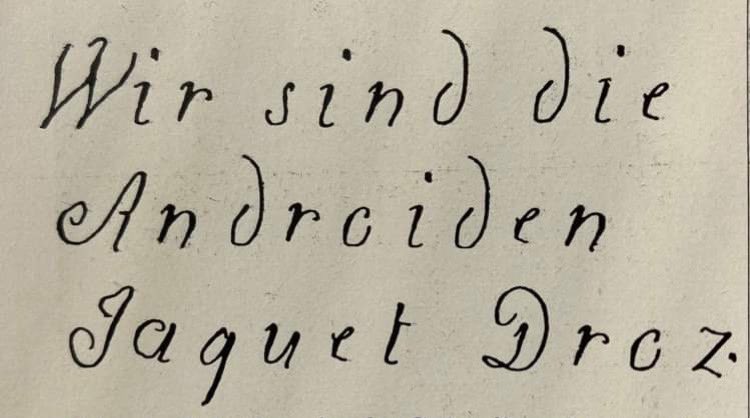 Wir sind die
Androiden
Jaquet Droz.